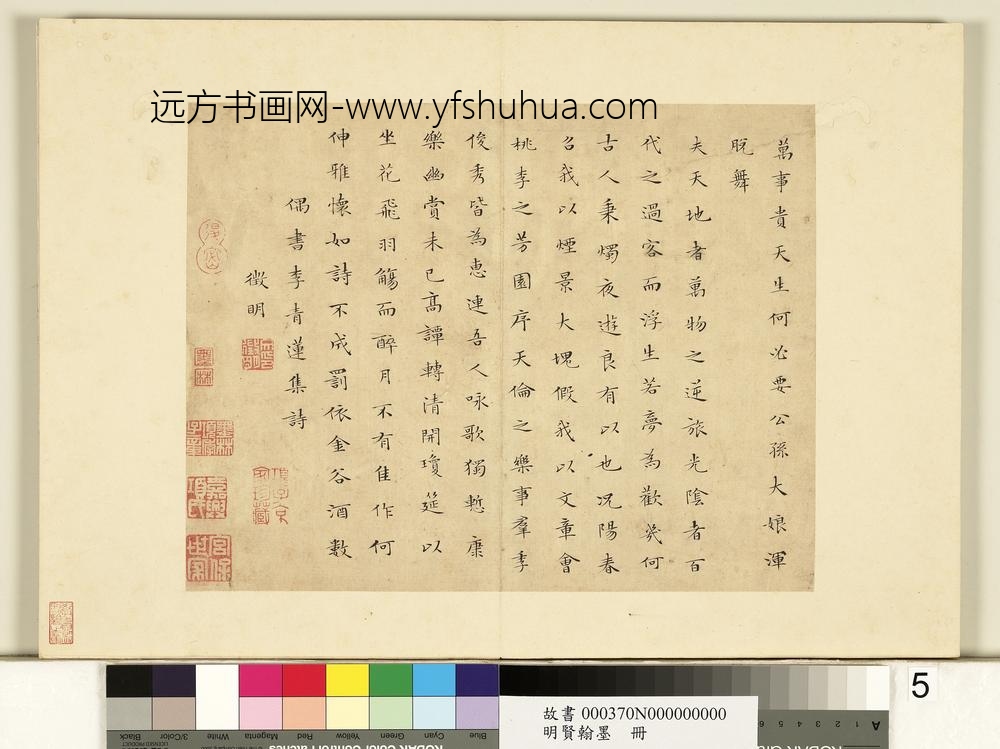 远方书画网-www.yfshuhua.com
萬事貴天生何必要公孫大娘渾
脫舞
夫天地者萬物之逆旅光陰者百
代之過客而浮生若夢為歡幾何
古人秉燭夜遊良有以也況陽春
召我以煙景大塊假我以文章會
桃李之芳園序天倫之樂事羣季
俊秀皆為惠連吾人咏歌獨慙康
樂幽賞未已高譚轉清開瓊筵以
坐花飛羽觴而醉月不有佳作何
伸雅懷如詩不成罰依金谷酒數
偶書李青蓮集詩
徵明
墨林
項子京家珍藏
5
故書 000370N000000000
明賢翰墨 冊
Black
3/Color
White
Magenta
Red
Yellow
Green
Cyan
Blue
A 1 2 3 4 5 6